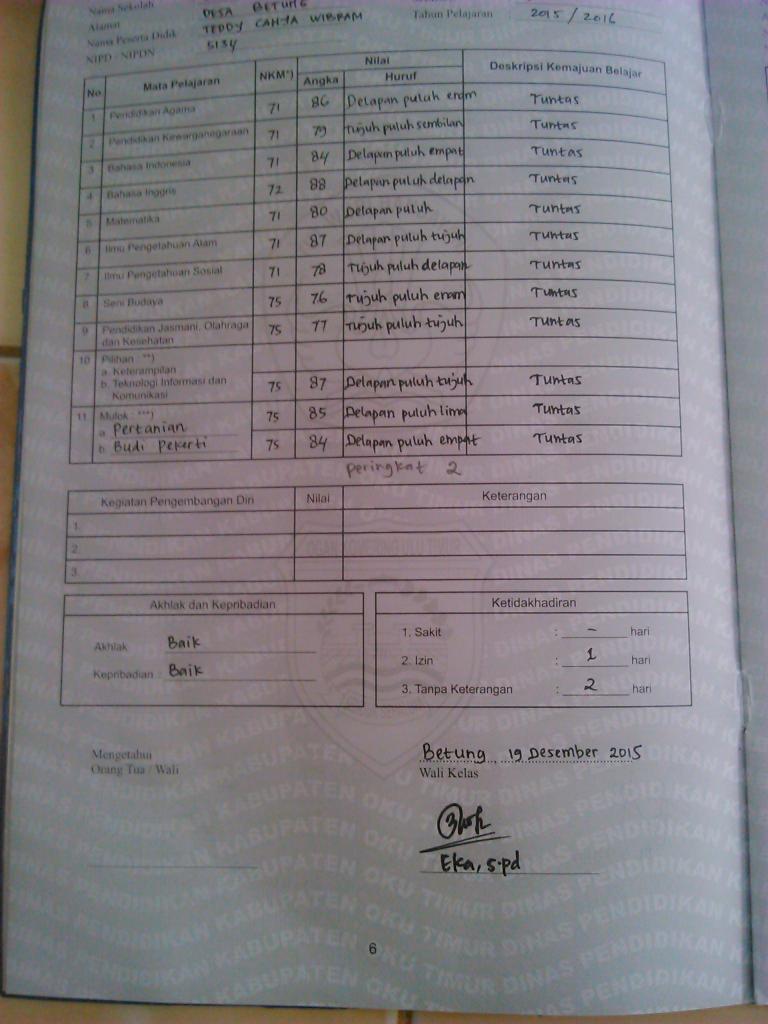 Nama Sekolah
Alamat : DESA BETUNG
Nama Peserta Didik TEDDY CAHYA WIBPAM Tahun Pelajaran : 2015 / 2016
NIPD - NIPDN 5134
No Mata Pelajaran NKM*) Nilai Deskripsi Kemajuan Belajar
Angka Huruf
1 Pendidikan Agama 71 86 Delapan puluh enam Tuntas
2 Pendidikan Kewarganegaraan 71 79 tujuh puluh sembilan Tuntas
3 Bahasa Indonesia 71 84 Delapan puluh empat Tuntas
4 Bahasa Inggris 72 88 Delapan puluh delapan Tuntas
5 Matematika 71 80 Delapan puluh Tuntas
6 Ilmu Pengetahuan Alam 71 87 Delapan puluh tujuh Tuntas
7 Ilmu Pengetahuan Sosial 71 78 Tujuh puluh delapan Tuntas
8 Seni Budaya 75 76 tujuh puluh enam Tuntas
9 Pendidikan Jasmani, Olahraga dan Kesehatan 75 77 tujuh puluh tujuh Tuntas
10 Pilihan **)
a. Keterampilan
b. Teknologi Informasi dan Komunikasi 75 87 Delapan puluh tujuh Tuntas
11 Mulok ***)
a. Pertanian 75 85 Delapan puluh lima Tuntas
b. Budi Pekerti 75 84 Delapan puluh empat Tuntas
peringkat 2
Kegiatan Pengembangan Diri Nilai Keterangan
1.
2.
3.
Akhlak dan Kepribadian
Akhlak Baik
Kepribadian : Baik
Ketidakhadiran
1. Sakit : - hari
2. Izin : 1 hari
3. Tanpa Keterangan : 2 hari
Mengetahui
Orang Tua / Wali
Betung, 19 Desember 2015
Wali Kelas
Eka, S.pd
6